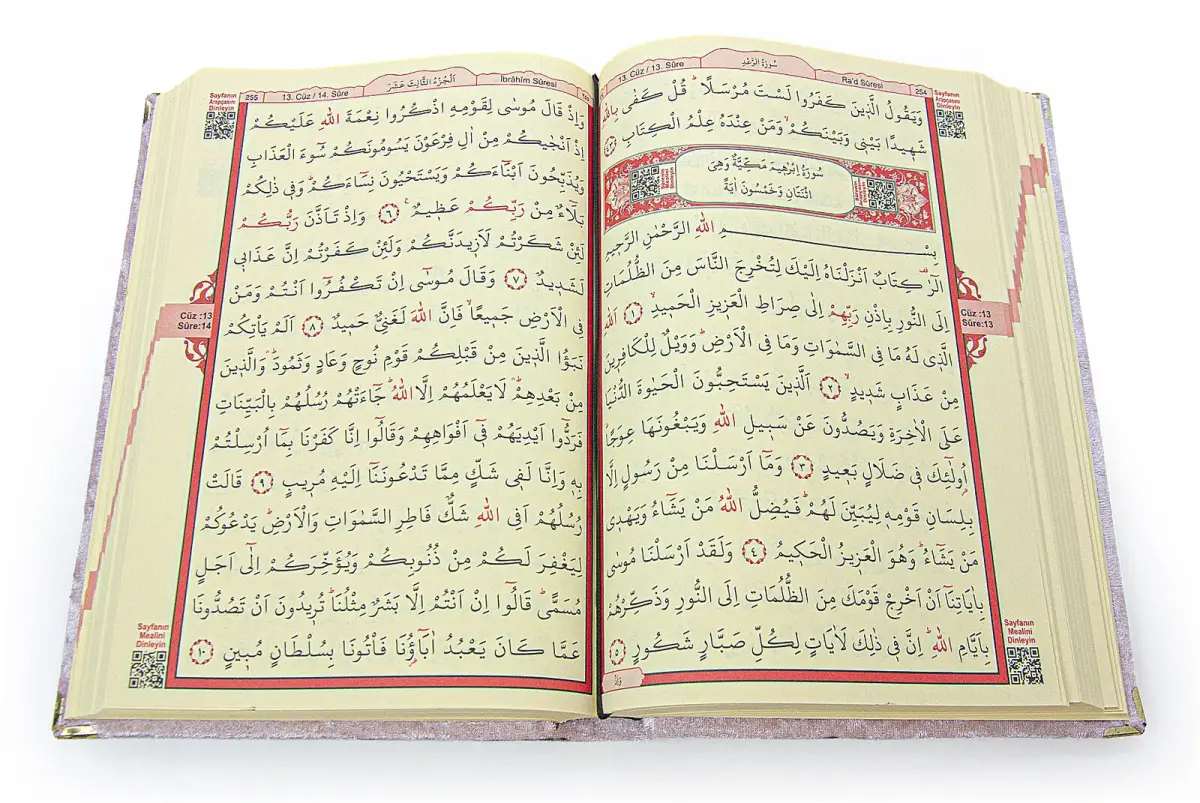 Sayfanın
Arapçasını
Dinleyin
254
Ra'd Sûresi
سُورَةُ الرَّعْدِ
13. Cüz / 13. Sûre
وَيَقُولُ الَّذٖينَ كَفَرُوا لَسْتَ مُرْسَلًاؕ قُلْ كَفٰى بِاللّٰهِ
شَهٖيدًا بَيْنٖى وَبَيْنَكُمْۙ وَمَنْ عِنْدَهُ عِلْمُ الْكِتَابِ ﴿٤٣﴾
سُورَةُ اِبْرٰهٖيمَ مَكِّيَّةٌ وَهِىَ
اثْنَتَانِ وَخَمْسُونَ اٰيَةً
بِسْمِ اللّٰهِ الرَّحْمٰنِ الرَّحٖيمِ
الٓرٰ۠ كِتَابٌ اَنْزَلْنَاهُ اِلَيْكَ لِتُخْرِجَ النَّاسَ مِنَ الظُّلُمَاتِ
اِلَى النُّورِ بِاِذْنِ رَبِّهِمْ اِلٰى صِرَاطِ الْعَزٖيزِ الْحَمٖيدِۙ ﴿١﴾ اَللّٰهِ
الَّذٖى لَهُ مَا فِى السَّمٰوَاتِ وَمَا فِى الْاَرْضِؕ وَوَيْلٌ لِلْكَافِرٖينَ
مِنْ عَذَابٍ شَدٖيدٍۙ ﴿٢﴾ اَلَّذٖينَ يَسْتَحِبُّونَ الْحَيٰوةَ الدُّنْيَا
عَلَى الْاٰخِرَةِ وَيَصُدُّونَ عَنْ سَبٖيلِ اللّٰهِ وَيَبْغُونَهَا عِوَجًاؕ
اُولٰٓئِكَ فٖى ضَلَالٍ بَعٖيدٍ ﴿٣﴾ وَمَٓا اَرْسَلْنَا مِنْ رَسُولٍ اِلَّا
بِلِسَانِ قَوْمِهٖ لِيُبَيِّنَ لَهُمْؕ فَيُضِلُّ اللّٰهُ مَنْ يَشَٓاءُ وَيَهْدٖى
مَنْ يَشَٓاءُؕ وَهُوَ الْعَزٖيزُ الْحَكٖيمُ ﴿٤﴾ وَلَقَدْ اَرْسَلْنَا مُوسٰى
بِاٰيَاتِنَٓا اَنْ اَخْرِجْ قَوْمَكَ مِنَ الظُّلُمَاتِ اِلَى النُّورِ وَذَكِّرْهُمْ
بِاَيَّامِ اللّٰهِؕ اِنَّ فٖى ذٰلِكَ لَاٰيَاتٍ لِكُلِّ صَبَّارٍ شَكُورٍ ﴿٥﴾
وَاِذْ
Cüz :13
Sûre:13
Sayfanın
Mealini
Dinleyin
İbrâhîm Sûresi
اَلْجُزْءُ الثَّالِثَ عَشَرَ
13. Cüz / 14. Sûre
255
Sayfanın
Arapçasını
Dinleyin
وَاِذْ قَالَ مُوسٰى لِقَوْمِهِ اذْكُرُوا نِعْمَةَ اللّٰهِ عَلَيْكُمْ
اِذْ اَنْجٰيكُمْ مِنْ اٰلِ فِرْعَوْنَ يَسُومُونَكُمْ سُٓوءَ الْعَذَابِ
وَيُذَبِّحُونَ اَبْنَٓاءَكُمْ وَيَسْتَحْيُونَ نِسَٓاءَكُمْؕ وَفٖى ذٰلِكُمْ
بَلَٓاءٌ مِنْ رَبِّكُمْ عَظٖيمٌ ﴿٦﴾ وَاِذْ تَاَذَّنَ رَبُّكُمْ
لَئِنْ شَكَرْتُمْ لَاَزٖيدَنَّكُمْ وَلَئِنْ كَفَرْتُمْ اِنَّ عَذَابٖى
لَشَدٖيدٌ ﴿٧﴾ وَقَالَ مُوسٰٓى اِنْ تَكْفُرُٓوا اَنْتُمْ وَمَنْ
فِى الْاَرْضِ جَمٖيعًاۙ فَاِنَّ اللّٰهَ لَغَنِىٌّ حَمٖيدٌ ﴿٨﴾ اَلَمْ يَاْتِكُمْ
نَبَؤُا الَّذٖينَ مِنْ قَبْلِكُمْ قَوْمِ نُوحٍ وَعَادٍ وَثَمُودَؕ وَالَّذٖينَ
مِنْ بَعْدِهِمْؕ لَا يَعْلَمُهُمْ اِلَّا اللّٰهُؕ جَٓاءَتْهُمْ رُسُلُهُمْ بِالْبَيِّنَاتِ
فَرَدُّٓوا اَيْدِيَهُمْ فٖٓى اَفْوَاهِهِمْ وَقَالُٓوا اِنَّا كَفَرْنَا بِمَٓا اُرْسِلْتُمْ
بِهٖ وَاِنَّا لَفٖى شَكٍّ مِمَّا تَدْعُونَنَٓا اِلَيْهِ مُرٖيبٍ ﴿٩﴾ قَالَتْ
رُسُلُهُمْ اَفِى اللّٰهِ شَكٌّ فَاطِرِ السَّمٰوَاتِ وَالْاَرْضِؕ يَدْعُوكُمْ
لِيَغْفِرَ لَكُمْ مِنْ ذُنُوبِكُمْ وَيُؤَخِّرَكُمْ اِلٰٓى اَجَلٍ
مُسَمًّىؕ قَالُٓوا اِنْ اَنْتُمْ اِلَّا بَشَرٌ مِثْلُنَاؕ تُرٖيدُونَ اَنْ تَصُدُّونَا
عَمَّا كَانَ يَعْبُدُ اٰبَٓاؤُ۬نَا فَاْتُونَا بِسُلْطَانٍ مُبٖينٍ ﴿١٠﴾
Cüz :13
Sûre:14
Sayfanın
Mealini
Dinleyin